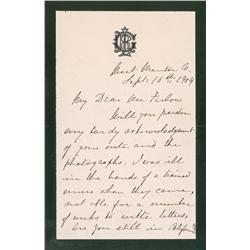 West Mentor O.
Sept. 15th 1904
My Dear Mr
Will you pardon
my tardy acknowledgment
of your note and the
photographs. I was ill
in the hands of a trained
nurse when they came,
not able for a number
of weeks to write letters,
Are you still in